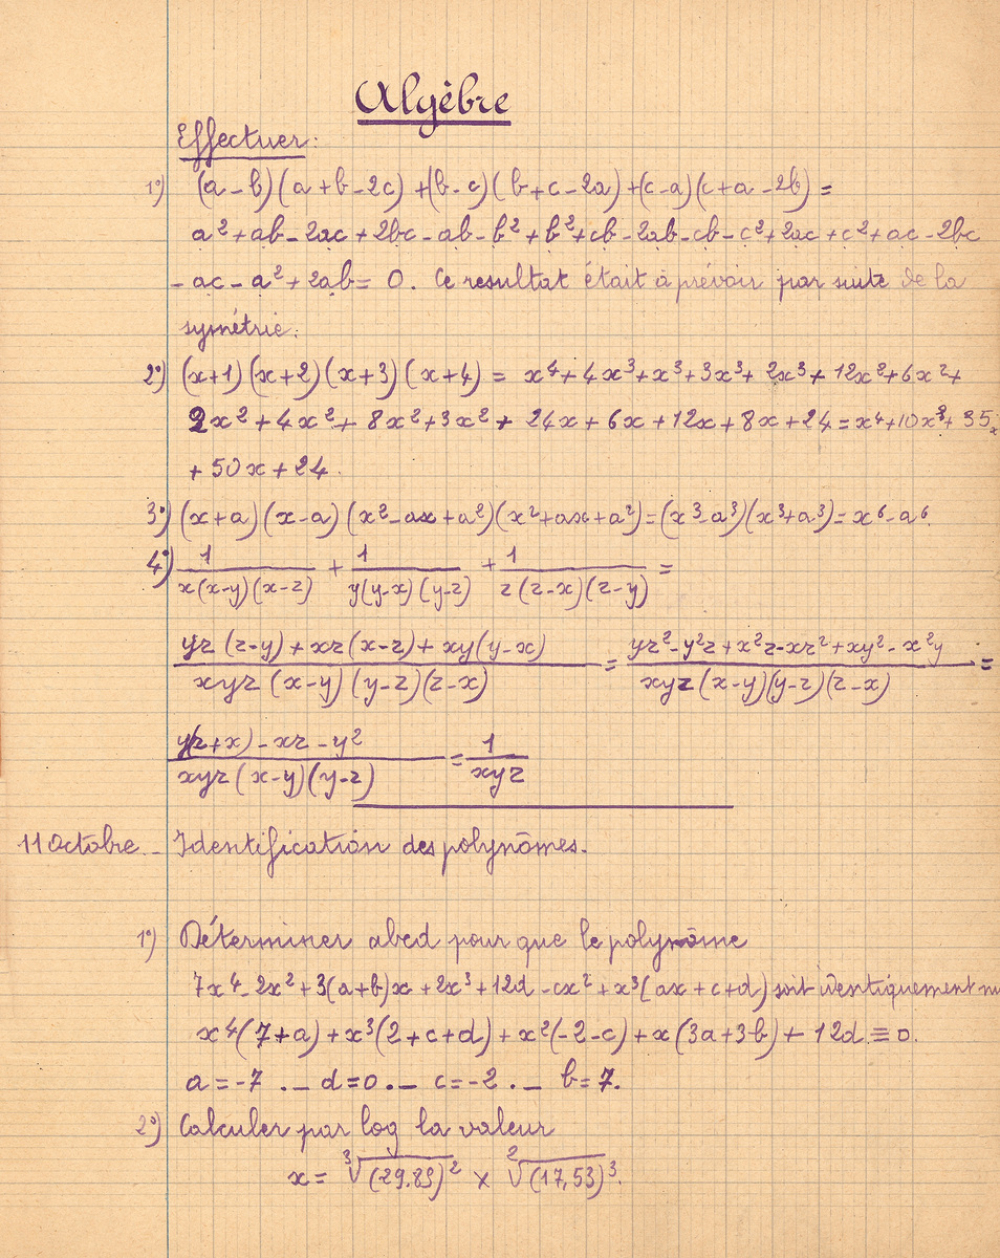 Algèbre
Effectuer:
1°) (a-b)(a+b-2c)+(b-c)(b+c-2a)+(c-a)(c+a-2b) =
a²+ab-2ac+2bc-ab-b²+b²+cb-2ab-cb-c²+2ac+c²+ac-2bc
-ac-a²+2ab= 0. Ce resultat était à prévoir par suite de la
symétrie.
2°) (x+1)(x+2)(x+3)(x+4) = x⁴+4x³+x³+3x³+2x³+12x²+6x²+
2x²+4x²+8x²+3x²+24x+6x+12x+8x+24=x⁴+10x³+35x
+50x+24.
3°) (x+a)(x-a)(x²-ax+a²)(x²+ax+a²)=(x³-a³)(x³+a³)=x⁶-a⁶
4°) 1/x(x-y)(x-z) + 1/y(y-x)(y-z) + 1/z(z-x)(z-y) =
yz(z-y)+xz(x-z)+xy(y-x)/xyz(x-y)(y-z)(z-x) = yz²-y²z+x²z-xz²+xy²-x²y/xyz(x-y)(y-z)(z-x) =
y(z+x)-xz-y²/xyz(x-y)(y-z) = 1/xyz
11 Octobre.- Identification des polynômes.
1°) Déterminer abcd pour que le polynôme
7x⁴-2x²+3(a+b)x+2x³+12d-cx²+x³(ax+c+d) soit identiquement nu
x⁴(7+a)+x³(2+c+d)+x²(-2-c)+x(3a+3b)+12d≡0.
a=-7 .- d=0.- c=-2.- b=7.
2°) Calculer par log la valeur
x= ³√(29.83)² × ²√(17,53)³.